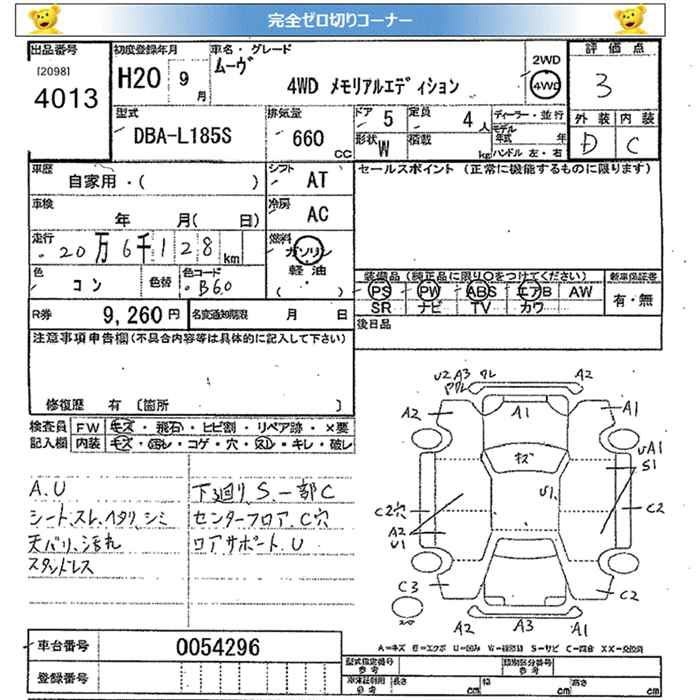 完全ゼロ切りコーナー
出品番号
[2098]
4013
初度登録年月
H20 9月
車名・グレード
ムーヴ
4WD メモリアルエディション
2WD
4WD
評価点
3
外装 内装
D C
型式
DBA-L185S
排気量
660 CC
ドア 5
定員 4人
形状 W
積載 kg
ディーラー・並行
モデル年式 年
ハンドル 左・右
車歴
自家用・( )
シフト AT
車検
年 月( 日)
冷房 AC
走行
20万6千128km
燃料
ガソリン
軽油
( )
色
コン
色替
色コード
B60
R券 9,260円
名変通知期限 月 日
セールスポイント (正常に機能するものに限ります)
装備品(純正品に限り○をつけてください)
PS PW ABS エアB AW
SR ナビ TV カワ
新車保証書
有・無
後日品
注意事項申告欄(不具合内容等は具体的に記入して下さい)
修復歴 有 [箇所 ]
検査員記入欄
FW キズ・飛石・ヒビ割・リペア跡・×要
内装 キズ・汚レ・コゲ・穴・スレ・キレ・破レ
A.U
シート、スレ、ヘタリ、シミ
天バリ、汚れ
スタッドレス
下廻り、S、一部C
センターフロア、C穴
コアサポート、U
U2 A3 クレ
A2
A2
A1
A1
キズ
U1
UA1
S1
C2穴
C2
A2
U1
C3
C2
A2
A3
A1
A=キズ E=エクボ U=凹み W=補修跡 S=サビ C=腐食 XX=交換済
車台番号 0054296
登録番号
型式指定番号 参考
類別区分番号 参考
車体証明用 参考
長さ cm
幅 cm
高さ cm